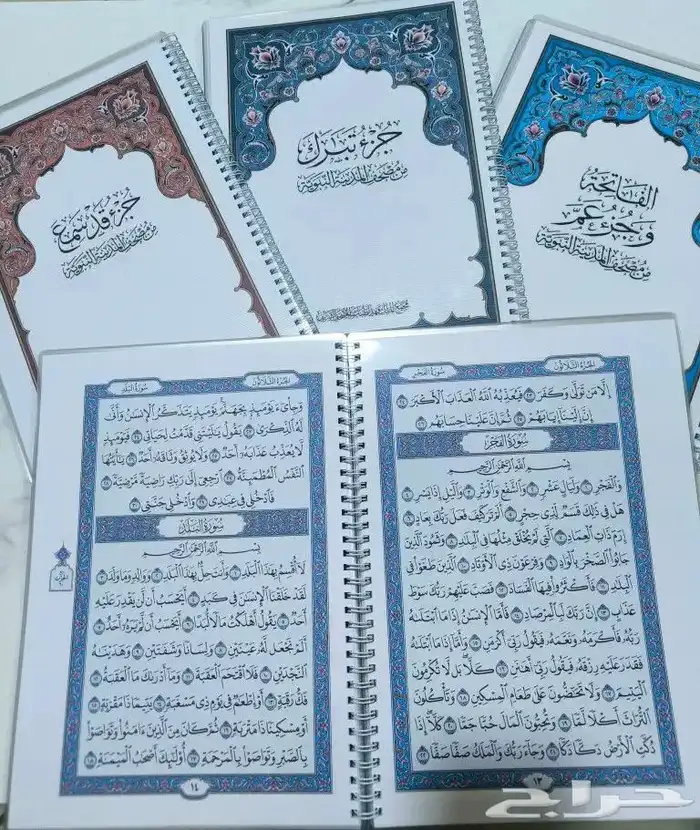 جُزْءُ قَدْ سَمِعَ
من مصحف المدينة النبوية
جُزْءُ تَبَارَكَ
من مصحف المدينة النبوية
الفَاتِحَة
وَجُزْءُ عَمَّ
من مصحف المدينة النبوية
الجُزْءُ الثَّلَاثُونَ
سُورَةُ الفَجْرِ
إِلَّا مَن تَوَلَّىٰ وَكَفَرَ ٢٣ فَيُعَذِّبُهُ ٱللَّهُ ٱلْعَذَابَ ٱلْأَكْبَرَ ٢٤
إِنَّ إِلَيْنَآ إِيَابَهُمْ ٢٥ ثُمَّ إِنَّ عَلَيْنَا حِسَابَهُم ٢٦
سُورَةُ الفَجْرِ
بِسْمِ ٱللَّهِ ٱلرَّحْمَٰنِ ٱلرَّحِيمِ
وَٱلْفَجْرِ ١ وَلَيَالٍ عَشْرٍ ٢ وَٱلشَّفْعِ وَٱلْوَتْرِ ٣ وَٱلَّيْلِ إِذَا يَسْرِ ٤
هَلْ فِى ذَٰلِكَ قَسَمٌ لِّذِى حِجْرٍ ٥ أَلَمْ تَرَ كَيْفَ فَعَلَ رَبُّكَ بِعَادٍ ٦
إِرَمَ ذَاتِ ٱلْعِمَادِ ٧ ٱلَّتِى لَمْ يُخْلَقْ مِثْلُهَا فِى ٱلْبِلَٰدِ ٨ وَثَمُودَ ٱلَّذِينَ
جَابُوا۟ ٱلصَّخْرَ بِٱلْوَادِ ٩ وَفِرْعَوْنَ ذِى ٱلْأَوْتَادِ ١٠ ٱلَّذِينَ طَغَوْا۟ فِى
ٱلْبِلَٰدِ ١١ فَأَكْثَرُوا۟ فِيهَا ٱلْفَسَادَ ١٢ فَصَبَّ عَلَيْهِمْ رَبُّكَ سَوْطَ
عَذَابٍ ١٣ إِنَّ رَبَّكَ لَبِٱلْمِرْصَادِ ١٤ فَأَمَّا ٱلْإِنسَٰنُ إِذَا مَا ٱبْتَلَىٰهُ
رَبُّهُۥ فَأَكْرَمَهُۥ وَنَعَّمَهُۥ فَيَقُولُ رَبِّىٓ أَكْرَمَنِ ١٥ وَأَمَّآ إِذَا مَا ٱبْتَلَىٰهُ
فَقَدَرَ عَلَيْهِ رِزْقَهُۥ فَيَقُولُ رَبِّىٓ أَهَٰنَنِ ١٦ كَلَّا بَل لَّا تُكْرِمُونَ
ٱلْيَتِيمَ ١٧ وَلَا تَحَٰٓضُّونَ عَلَىٰ طَعَامِ ٱلْمِسْكِينِ ١٨ وَتَأْكُلُونَ
ٱلتُّرَاثَ أَكْلًا لَّمًّا ١٩ وَتُحِبُّونَ ٱلْمَالَ حُبًّا جَمًّا ٢٠ كَلَّآ إِذَا
دُكَّتِ ٱلْأَرْضُ دَكًّا دَكًّا ٢١ وَجَآءَ رَبُّكَ وَٱلْمَلَكُ صَفًّا صَفًّا ٢٢
١٣
الجُزْءُ الثَّلَاثُونَ
سُورَةُ البَلَدِ
وَجِا۟ىٓءَ يَوْمَئِذٍۭ بِجَهَنَّمَ يَوْمَئِذٍ يَتَذَكَّرُ ٱلْإِنسَٰنُ وَأَنَّىٰ
لَهُ ٱلذِّكْرَىٰ ٢٣ يَقُولُ يَٰلَيْتَنِى قَدَّمْتُ لِحَيَاتِى ٢٤ فَيَوْمَئِذٍ
لَّا يُعَذِّبُ عَذَابَهُۥٓ أَحَدٌ ٢٥ وَلَا يُوثِقُ وَثَاقَهُۥٓ أَحَدٌ ٢٦ يَٰٓأَيَّتُهَا
ٱلنَّفْسُ ٱلْمُطْمَئِنَّةُ ٢٧ ٱرْجِعِىٓ إِلَىٰ رَبِّكِ رَاضِيَةً مَّرْضِيَّةً ٢٨
فَٱدْخُلِى فِى عِبَٰدِى ٢٩ وَٱدْخُلِى جَنَّتِى ٣٠
سُورَةُ البَلَدِ
بِسْمِ ٱللَّهِ ٱلرَّحْمَٰنِ ٱلرَّحِيمِ
لَآ أُقْسِمُ بِهَٰذَا ٱلْبَلَدِ ١ وَأَنتَ حِلٌّۢ بِهَٰذَا ٱلْبَلَدِ ٢ وَوَالِدٍ وَمَا وَلَدَ ٣
لَقَدْ خَلَقْنَا ٱلْإِنسَٰنَ فِى كَبَدٍ ٤ أَيَحْسَبُ أَن لَّن يَقْدِرَ عَلَيْهِ
أَحَدٌ ٥ يَقُولُ أَهْلَكْتُ مَالًا لُّبَدًا ٦ أَيَحْسَبُ أَن لَّمْ يَرَهُۥٓ أَحَدٌ ٧
أَلَمْ نَجْعَل لَّهُۥ عَيْنَيْنِ ٨ وَلِسَانًا وَشَفَتَيْنِ ٩ وَهَدَيْنَٰهُ
ٱلنَّجْدَيْنِ ١٠ فَلَا ٱقْتَحَمَ ٱلْعَقَبَةَ ١١ وَمَآ أَدْرَىٰكَ مَا ٱلْعَقَبَةُ ١٢
فَكُّ رَقَبَةٍ ١٣ أَوْ إِطْعَٰمٌ فِى يَوْمٍ ذِى مَسْغَبَةٍ ١٤ يَتِيمًا ذَا مَقْرَبَةٍ ١٥
أَوْ مِسْكِينًا ذَا مَتْرَبَةٍ ١٦ ثُمَّ كَانَ مِنَ ٱلَّذِينَ ءَامَنُوا۟ وَتَوَاصَوْا۟
بِٱلصَّبْرِ وَتَوَاصَوْا۟ بِٱلْمَرْحَمَةِ ١٧ أُو۟لَٰٓئِكَ أَصْحَٰبُ ٱلْمَيْمَنَةِ ١٨
١٤
حراج